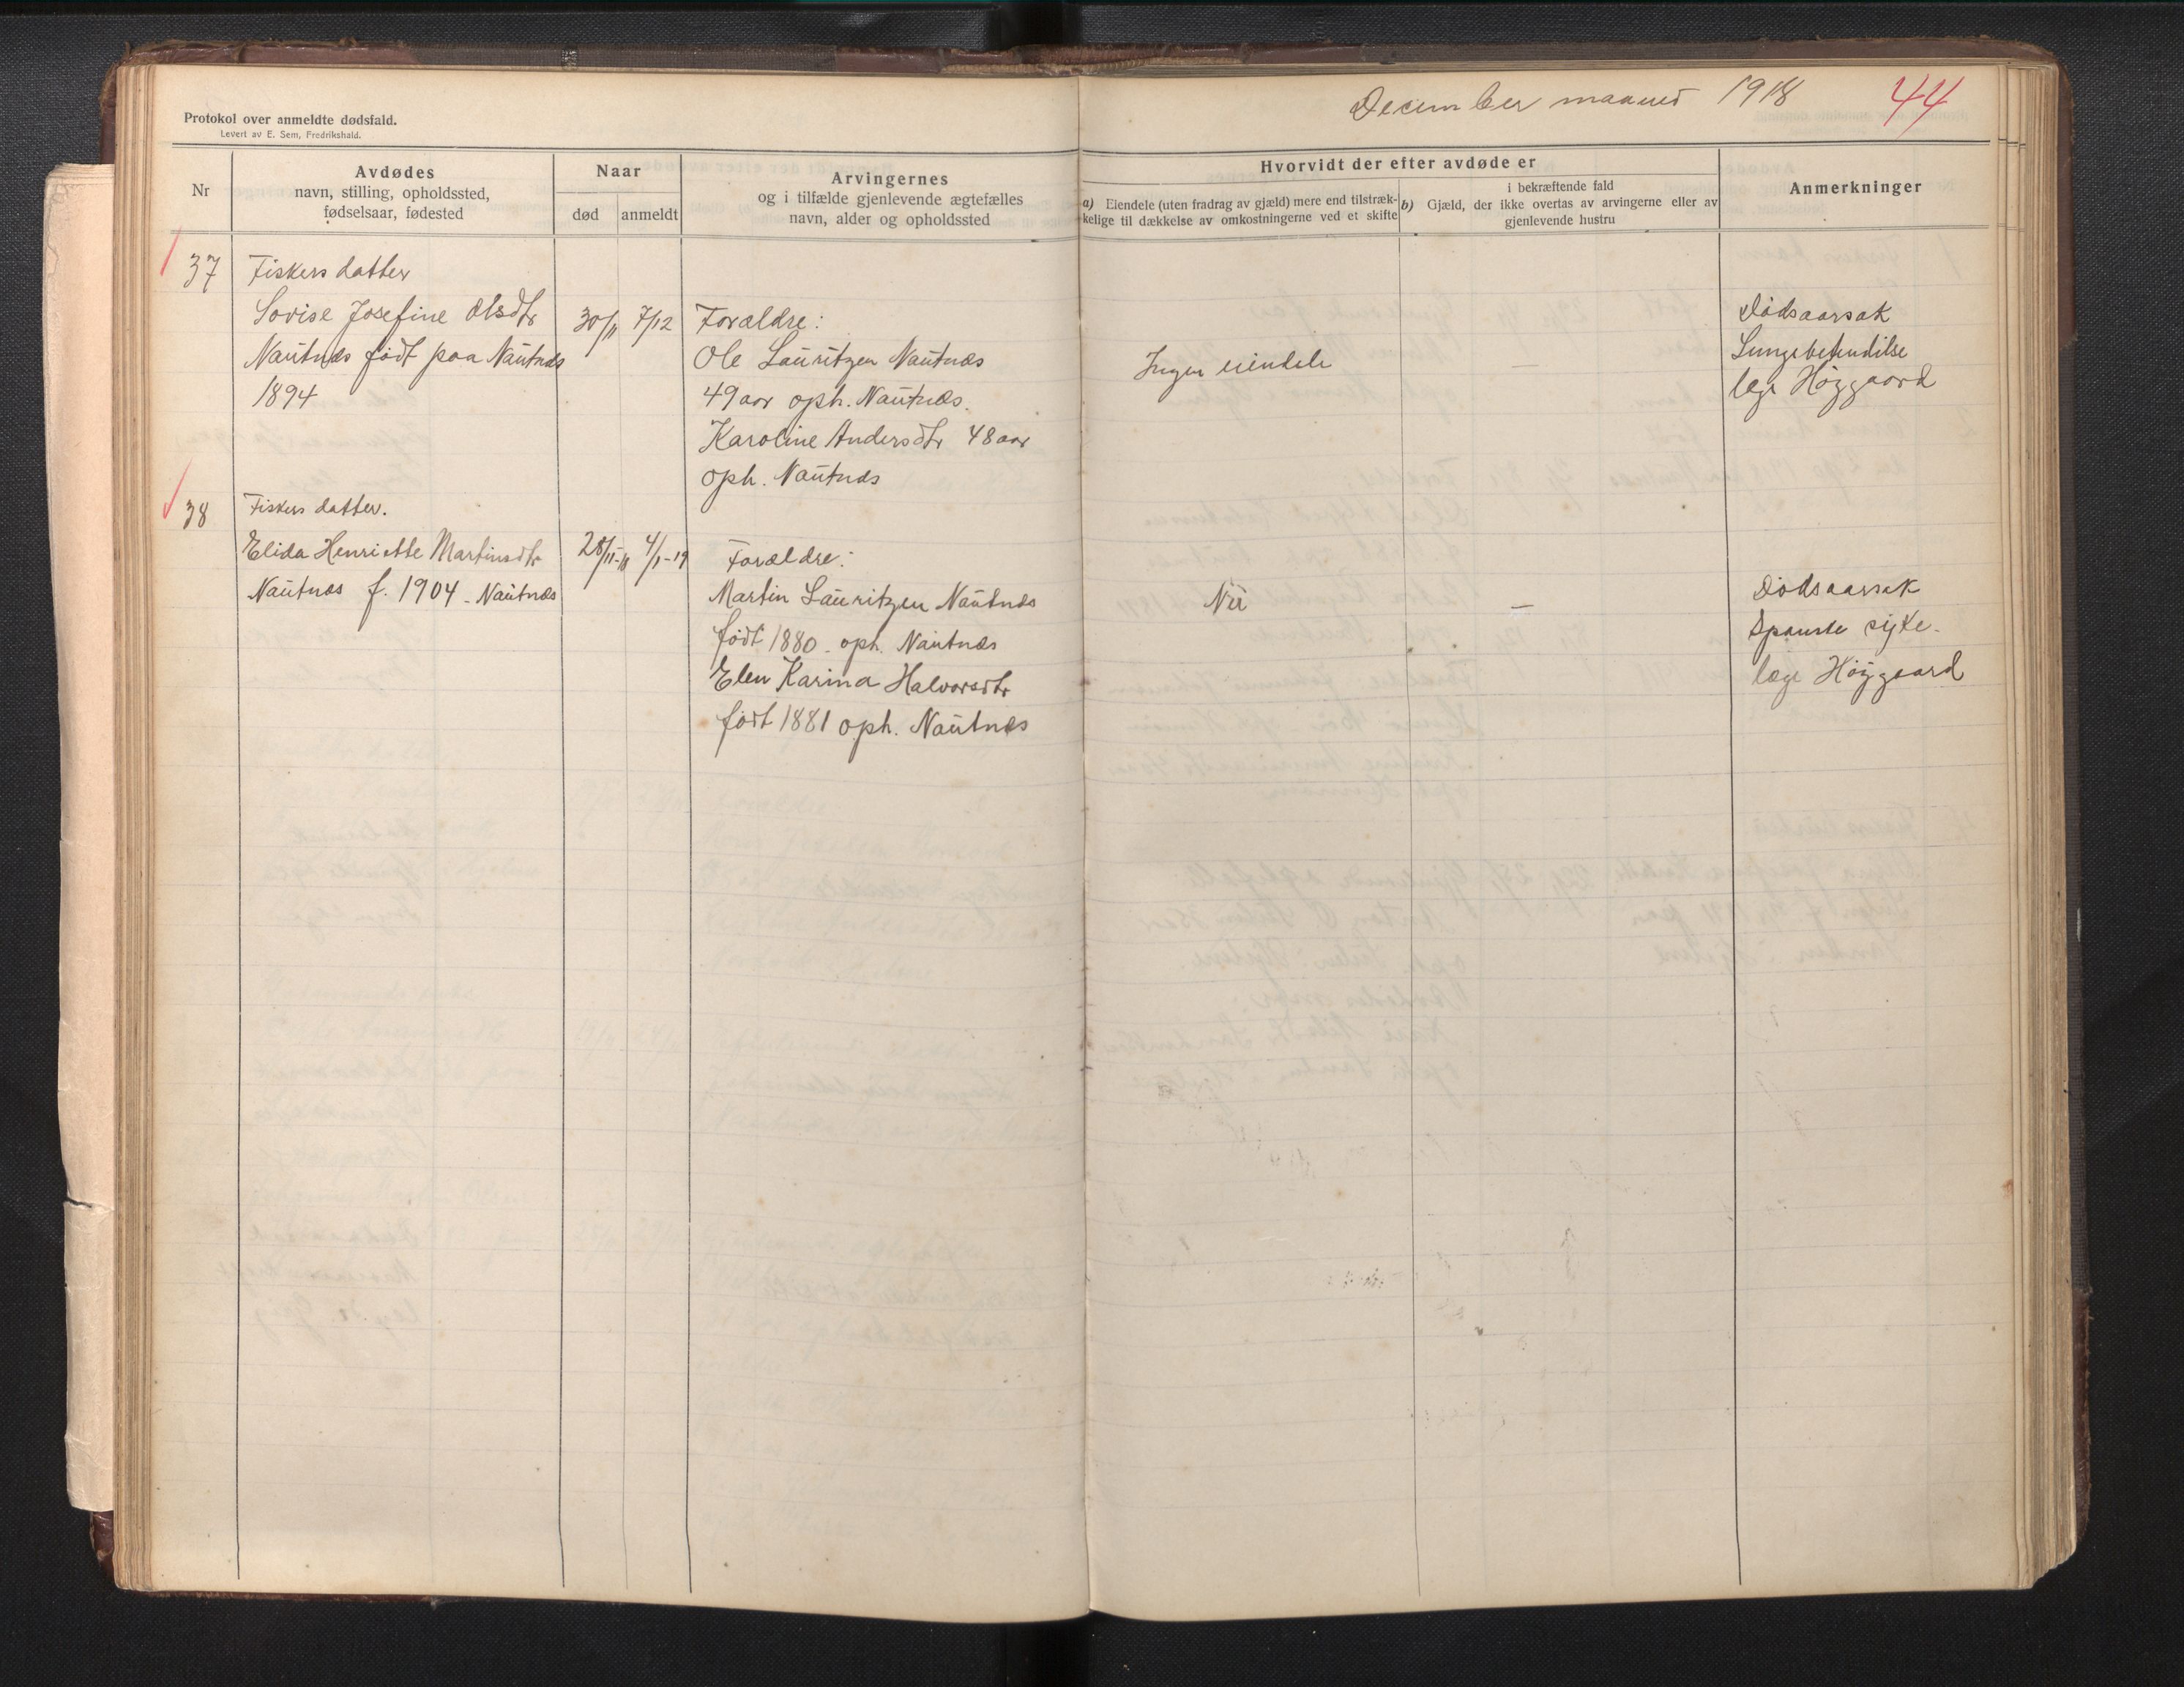 December maaned 1918 44
Protokol over anmeldte dødsfald.
Levert av E. Sem, Fredrikshald.
Nr
Avdødes
navn, stilling, opholdssted,
fødselsaar, fødested
Naar
død anmeldt
Arvingernes
og i tilfælde gjenlevende ægtefælles
navn, alder og opholdssted
Hvorvidt der efter avdøde er
a) Eiendele (uten fradrag av gjæld) mere end tilstræk-
kelige til dækkelse av omkostningerne ved et skifte
i bekræftende fald
b) Gjæld, der ikke overtas av arvingerne eller av
gjenlevende hustru
Anmerkninger
37 Fiskers datter
Lovise Josefine Olsdtr
Nautnæs født paa Nautnæs
1894
30/11 7/12
Forældre:
Ole Lauritzen Nautnæs
49 aar oph. Nautnæs.
Karoline Andersdtr 48 aar
oph. Nautnæs
Ingen eiendele
—
Dødsaarsak
Lungebetendilse
læge Høygaard
38 Fiskers datter.
Elida Henriette Martinsdtr
Nautnæs f. 1904 - Nautnæs
28/11-18 4/1-19
Forældre:
Martin Lauritzen Nautnæs
født 1880 - oph. Nautnæs
Elen Karina Halvorsdtr
født 1881 oph. Nautnæs
Nei
—
Dødsaarsak
Spanske syke.
læge Høygaard